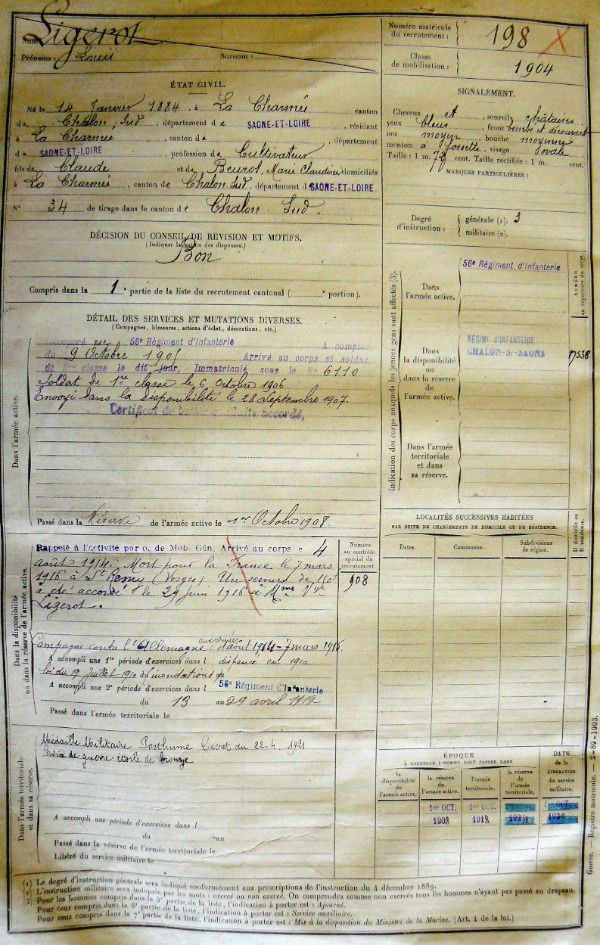 Nom: Ligerot
Prénoms: Louis Surnom:
Numéro matricule du recrutement: 198
Classe de mobilisation: 1904
ÉTAT CIVIL.
Né le 14 Janvier 1884, à La Charmée canton
d Chalon Sud, département de SAONE-ET-LOIRE, résidant
à La Charmée canton d département
d SAONE-ET-LOIRE profession de Cultivateur
fils de Claude et de Beurot, Marie Claudine domiciliés
à La Charmée, canton de Chalon Sud, département d SAONE-ET-LOIRE
N° 34 de tirage dans le canton de Chalon-Sud.
SIGNALEMENT.
Cheveux et sourcils châtains
yeux bleus front
nez moyen bouche moyenne
menton à fossette visage ovale
Taille: 1 m. cent. Taille rectifiée: 1 m. cent.
MARQUES PARTICULIÈRES:
Degré d'instruction: générale (1): 3
militaire (2).
DÉCISION DU CONSEIL DE RÉVISION ET MOTIFS.
(Indiquer la nature des dispenses.)
Bon
Compris dans la 1e partie de la liste du recrutement cantonal ( portion).
Indication des corps auxquels les jeunes gens sont affectés (3).
Dans l'armée active.
56e Régiment d'Infanterie
Dans la disponibilité ou dans la réserve de l'armée active.
RÉGIM. D'INFANTERIE
CHALON-S/-SAONE
Dans l'armée territoriale et dans sa réserve.
DÉTAIL DES SERVICES ET MUTATIONS DIVERSES.
(Campagnes, blessures, actions d'éclat, décorations, etc.)
Dans l'armée active.
56e Régiment d'Infanterie à compter
du 9 Octobre 1905 Arrivé au corps et soldat
de 2e classe le dit jour, Immatriculé sous le No 6110
Soldat de 1re classe le 6 Octobre 1906
Envoyé dans la disponibilité le 28 Septembre 1907.
Certificat de bonne conduite accordé.
Passé dans la Réserve de l'armée active le 1er Octobre 1908.
Dans la disponibilité ou dans la réserve de l'armée active.
Rappelé à l'activité par o. de Mob. Gén. Arrivé au corps le 4
août 1914. Mort pour la France le 7 mars
1916 à St Remy (Vosges) Un secours de 150f
a été accordé le 29 juin 1916 à Mme Vve
Ligerot.
Numéro au contrôle spécial du recrutement
908
Campagne contre l'Allemagne août 1914 - 7 mars 1916
A accompli une 1re période d'exercices dans l dispensé en 1910
loi du 19 Juillet 1910 (inondations)
A accompli une 2e période d'exercices dans l 56e Régiment d'Infanterie
du 13 au 29 avril 1912
Passé dans l'armée territoriale le
LOCALITÉS SUCCESSIVES HABITÉES
PAR SUITE DE CHANGEMENTS DE DOMICILE OU DE RÉSIDENCE.
Dates. Communes. Subdivisions de région. D domicile ou R résidence.
Dans l'armée territoriale et dans sa réserve.
Médaille Militaire Posthume Décret du 22-4-1921
Croix de guerre étoile de bronze
A accompli une période d'exercices dans l
du au
Passé dans la réserve de l'armée territoriale le
Libéré du service militaire le
ÉPOQUE
À LAQUELLE L'HOMME DOIT PASSER DANS:
la disponibilité de l'armée active. la réserve de l'armée active. l'armée territoriale. la réserve de l'armée territoriale.
DATE de la LIBÉRATION du service militaire.
1er OCT. 1908
1er OCT. 1918
Guerre. — Registre matricule. — 2-89-1903.
(1) Le degré d'instruction générale sera indiqué conformément aux prescriptions de l'instruction du 4 décembre 1889.
(2) L'instruction militaire sera indiquée par les mots: exercé ou non exercé. On comprendra comme non exercés tous les hommes n'ayant pas passé au drapeau.
(3) Pour les hommes compris dans la 5e partie de la liste, l'indication à porter est: Ajourné.
Pour ceux compris dans la 6e partie de la liste, l'indication à porter est: Service auxiliaire.
Pour ceux compris dans la 7e partie de la liste, l'indication à porter est: Mis à la disposition du Ministre de la Marine. (Art. 4 de la loi.)